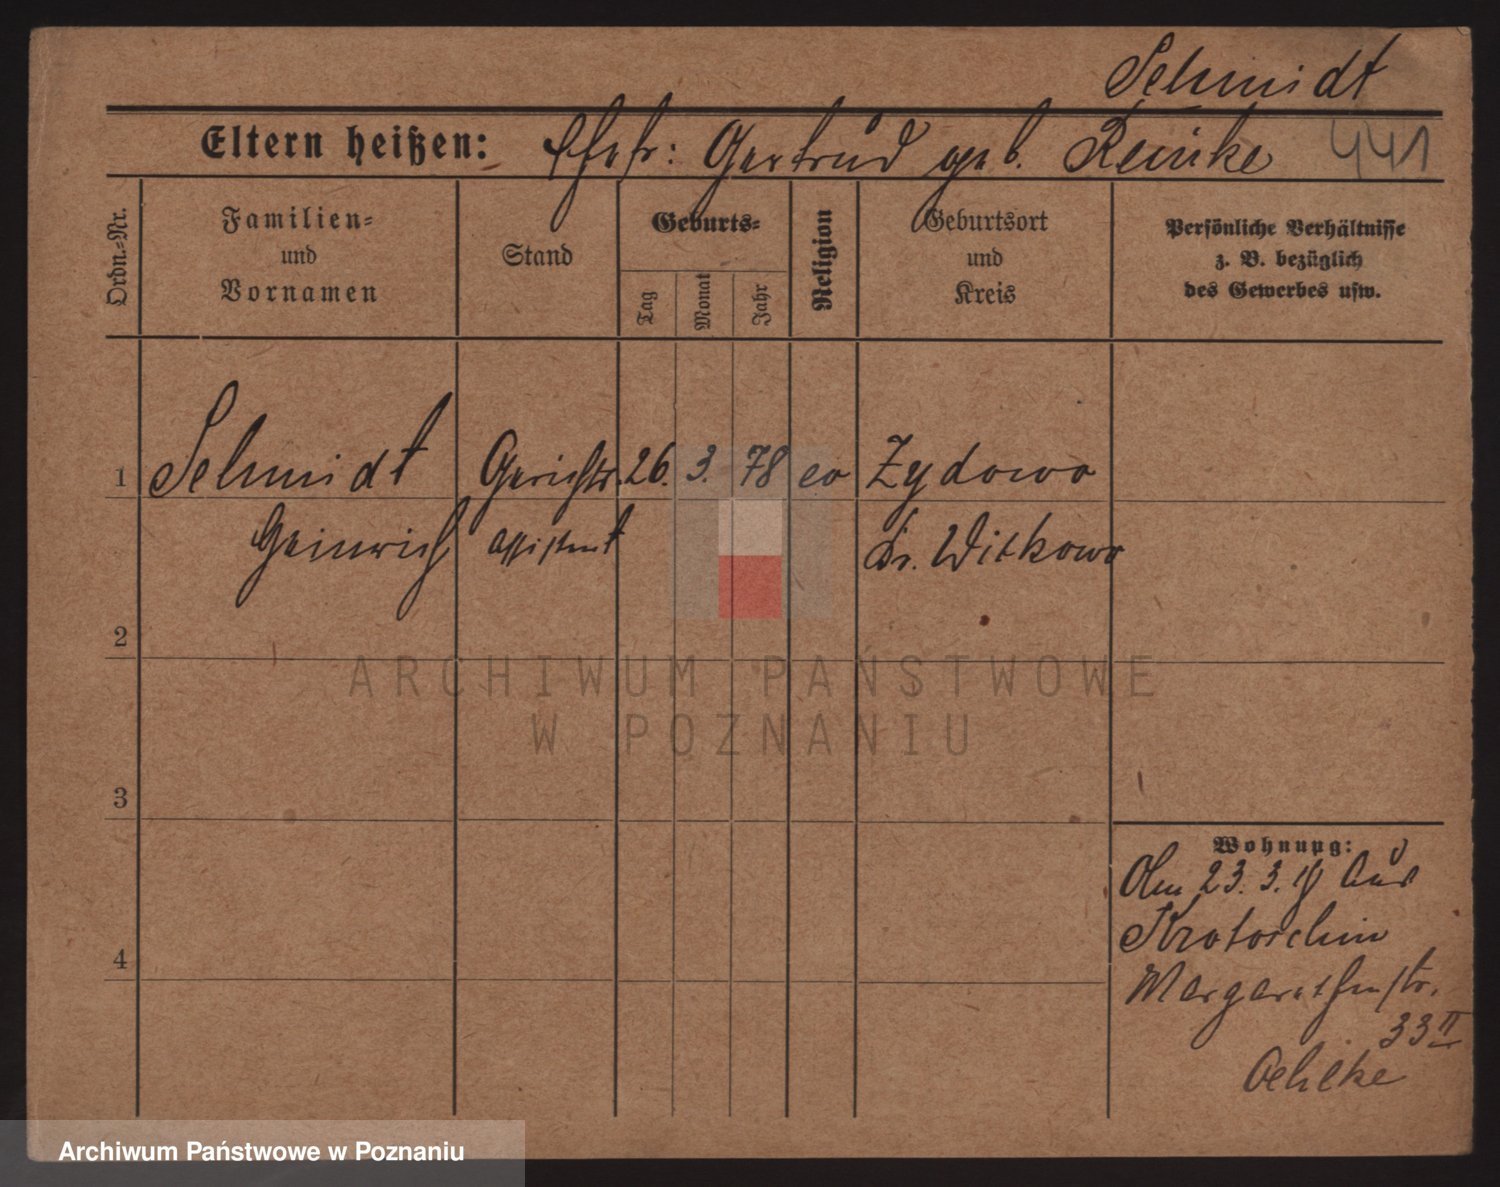 Schmidt
Eltern heißen: Ehefr: Gertrud geb. Reinke 441
Ordn.-Nr.
Familien-
und
Vornamen
Stand
Geburts-
Tag
Monat
Jahr
Religion
Geburtsort
und
Kreis
Persönliche Verhältnisse
z. B. bezüglich
des Gewerbes usw.
1 Schmidt Gerichts. 26. 3. 78 ev Zydowo
Heinrich Assistent Kr. Witkowo
2
3
4
Wohnung:
Am 23. 3. aus
Krotoschin
Margarethenstr.
33 II
Oehlke
ARCHIWUM PAŃSTWOWE
W POZNANIU
Archiwum Państwowe w Poznaniu